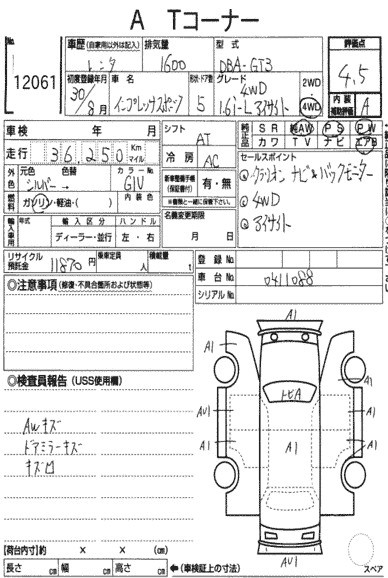 A Tコーナー
No. 12061
車歴 (自家用以外は記入) 排気量 型式
レンタ 1600 DBA-GT3
初度登録年月 車名 形状・ドア数 グレード
30年 8月 インプレッサスポーツ 5 4WD 1.6i-L アイサイト
2WD・4WD
評価点
4.5
内装補助評価 A
車検 年 月
走行 36,250 Km マイル
外色 元色 色替 カラーNo.
シルバー → G1V
燃料 ガソリン・軽油・( ) 内装色
輸入車用 年式 輸入区分 ハンドル
ディーラー・並行 左・右
シフト AT
冷房 AC
新車整備手帳(保証書付) 有・無
名義変更期限
月 日
純正品 SR 純AW PS PW
カワ TV ナビ エアB
セールスポイント
①クラリオンナビ&バックモニター
②4WD
③アイサイト
リサイクル預託金 11870円 乗車定員 人 積載量 t
登録No.
車台No. 0411088
シリアルNo.
◎注意事項 (修復・不具合箇所および状態等)
◎検査員報告 (USS使用欄)
AWキズ
ドアミラーキズ
キズ凹
A1
A1
A1
トビA
AU1
AU1
A1
A1
A1
AU1
【荷台内寸】約 × × (cm)
長さ cm 幅 cm 高さ cm ←(車検証上の寸法)
スペア